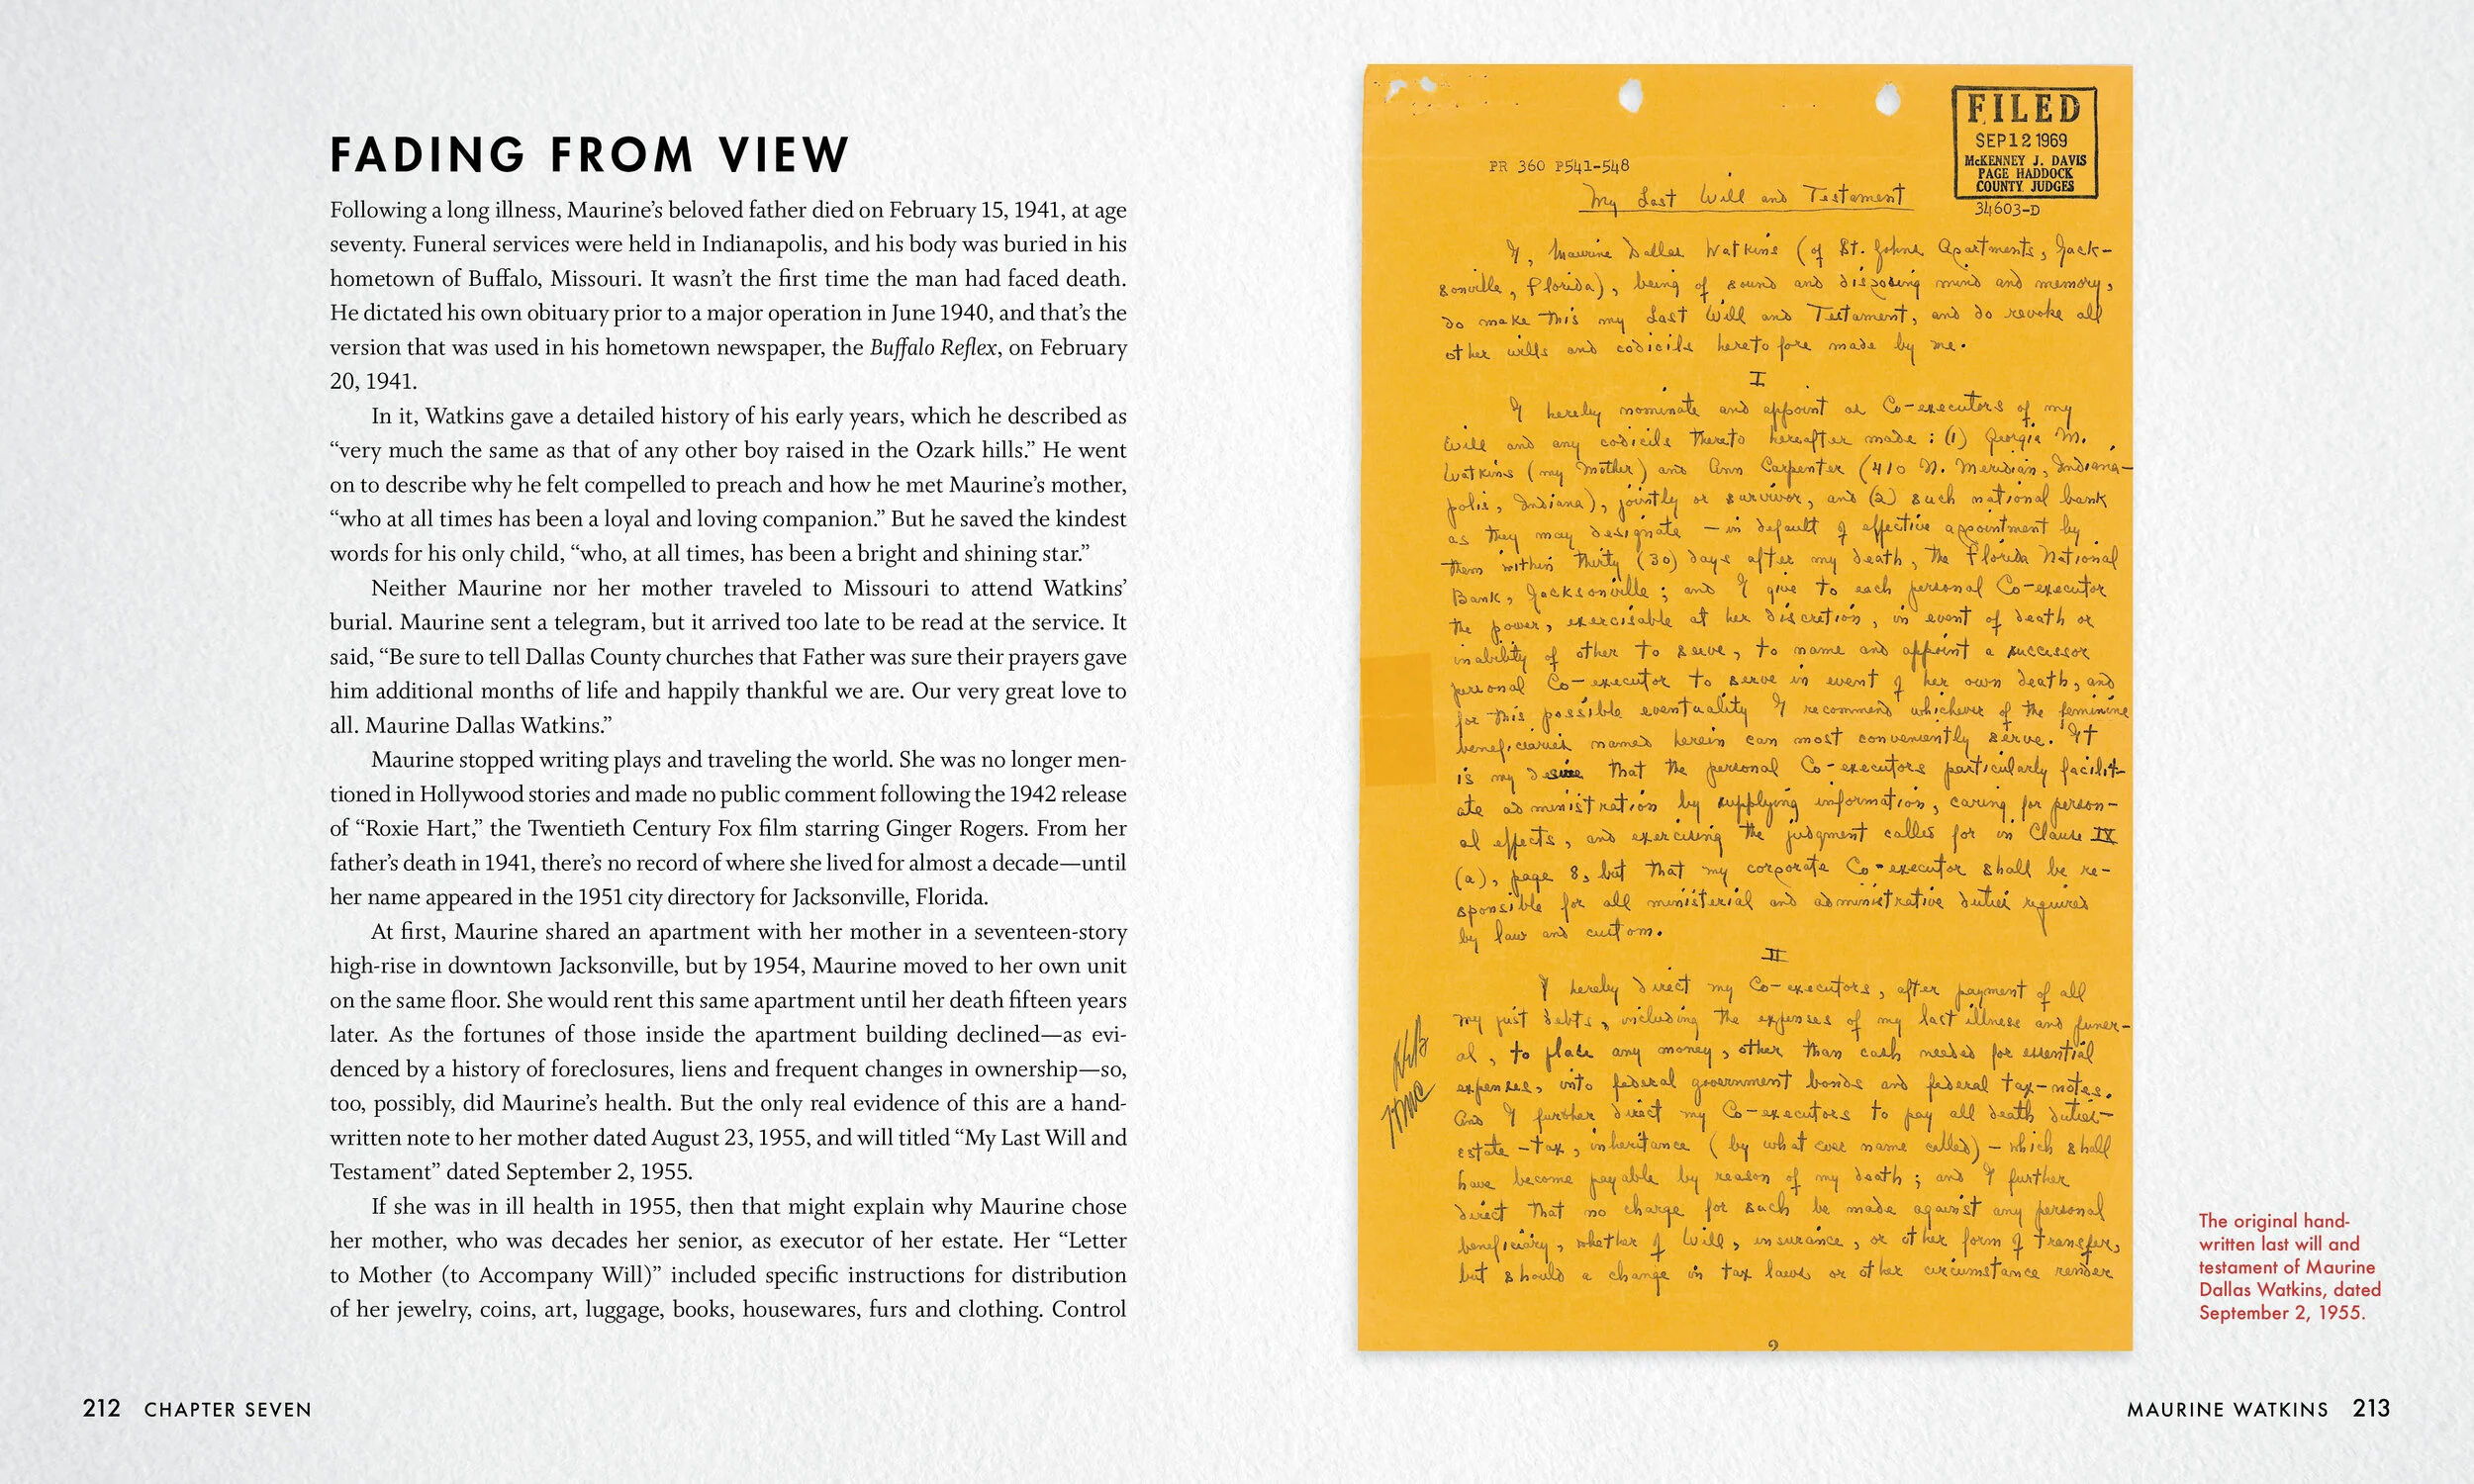 FADING FROM VIEW
Following a long illness, Maurine’s beloved father died on February 15, 1941, at age
seventy. Funeral services were held in Indianapolis, and his body was buried in his
hometown of Buffalo, Missouri. It wasn’t the first time the man had faced death.
He dictated his own obituary prior to a major operation in June 1940, and that’s the
version that was used in his hometown newspaper, the Buffalo Reflex, on February
20, 1941.
In it, Watkins gave a detailed history of his early years, which he described as
“very much the same as that of any other boy raised in the Ozark hills.” He went
on to describe why he felt compelled to preach and how he met Maurine’s mother,
“who at all times has been a loyal and loving companion.” But he saved the kindest
words for his only child, “who, at all times, has been a bright and shining star.”
Neither Maurine nor her mother traveled to Missouri to attend Watkins’
burial. Maurine sent a telegram, but it arrived too late to be read at the service. It
said, “Be sure to tell Dallas County churches that Father was sure their prayers gave
him additional months of life and happily thankful we are. Our very great love to
all. Maurine Dallas Watkins.”
Maurine stopped writing plays and traveling the world. She was no longer men-
tioned in Hollywood stories and made no public comment following the 1942 release
of “Roxie Hart,” the Twentieth Century Fox film starring Ginger Rogers. From her
father’s death in 1941, there’s no record of where she lived for almost a decade—until
her name appeared in the 1951 city directory for Jacksonville, Florida.
At first, Maurine shared an apartment with her mother in a seventeen-story
high-rise in downtown Jacksonville, but by 1954, Maurine moved to her own unit
on the same floor. She would rent this same apartment until her death fifteen years
later. As the fortunes of those inside the apartment building declined—as evi-
denced by a history of foreclosures, liens and frequent changes in ownership—so,
too, possibly, did Maurine’s health. But the only real evidence of this are a hand-
written note to her mother dated August 23, 1955, and will titled “My Last Will and
Testament” dated September 2, 1955.
If she was in ill health in 1955, then that might explain why Maurine chose
her mother, who was decades her senior, as executor of her estate. Her “Letter
to Mother (to Accompany Will)” included specific instructions for distribution
of her jewelry, coins, art, luggage, books, housewares, furs and clothing. Control
212 CHAPTER SEVEN
FILED
SEP 12 1969
McKENNEY J. DAVIS
PAGE HADDOCK
COUNTY JUDGES
34603-D
PR 360 P541-548
My Last Will and Testament
I, Maurine Dallas Watkins (of St. Johns Apartments, Jack-
sonville, Florida), being of sound and disposing mind and memory,
do make this my Last Will and Testament, and do revoke all
other wills and codicils heretofore made by me.
I
I hereby nominate and appoint as Co-executors of my
Will and any codicils thereto hereafter made: (1) Georgia M.
Watkins (my Mother) and Ann Carpenter (410 N. Meridian, Indiana-
polis, Indiana), jointly or survivor, and (2) such national bank
as they may designate – in default of effective appointment by
them within thirty (30) days after my death, the Florida National
Bank, Jacksonville; and I give to each personal Co-executor
the power, exercisable at her discretion, in event of death or
inability of other to serve, to name and appoint a successor
personal Co-executor to serve in event of her own death, and
for this possible eventuality I recommend whichever of the feminine
beneficiaries named herein can most conveniently serve. It
is my desire that the personal Co-executors particularly facilit-
ate administration by supplying information, caring for person-
al effects, and exercising the judgment called for in Clause IX
(a), page 8, but that my corporate Co-executor shall be re-
sponsible for all ministerial and administrative duties required
by law and custom.
II
I hereby direct my Co-executors, after payment of all
my just debts, including the expenses of my last illness and funer-
al, to place any money, other than cash needed for essential
expenses, into federal government bonds and federal tax-notes.
And I further direct my Co-executors to pay all death duties–
estate-tax, inheritance (by what ever name called) – which shall
have become payable by reason of my death; and I further
direct that no charge for such be made against any personal
beneficiary, whether of Will, insurance, or other form of transfer,
but should a change in tax laws or other circumstance render
The original hand-
written last will and
testament of Maurine
Dallas Watkins, dated
September 2, 1955.
MAURINE WATKINS 213